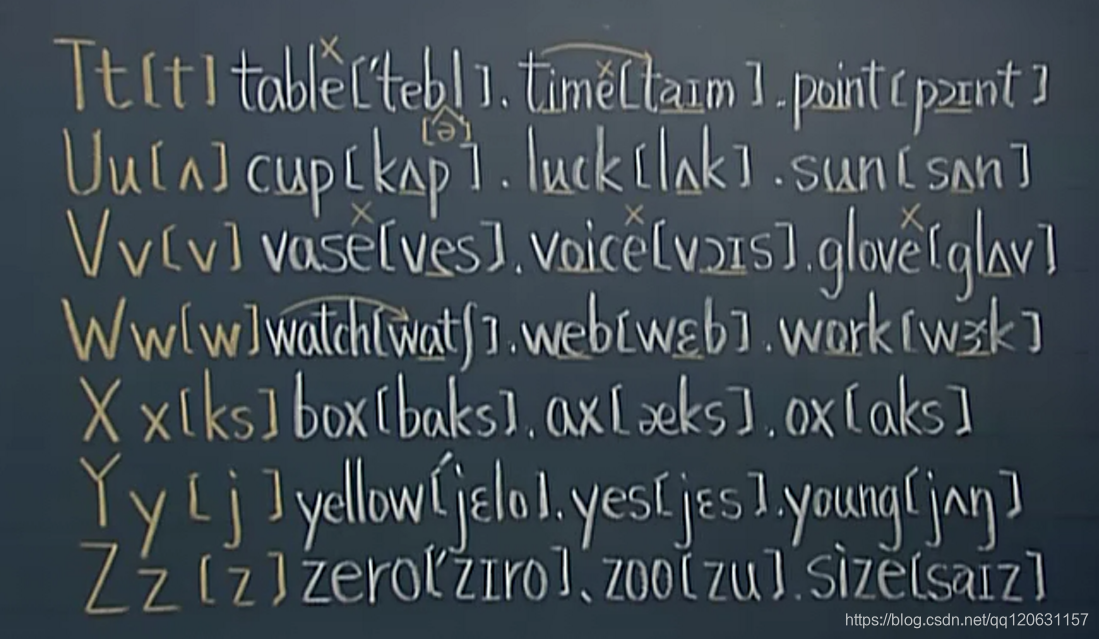 Tt [t] table ['tebl]. time [taɪm]. point [pɔɪnt]
[ə]
Uu [ʌ] cup [kʌp]. luck [lʌk]. sun [sʌn]
Vv [v] vase [ves]. voice [vɔɪs]. glove [glʌv]
Ww [w] watch [watʃ]. web [wɛb]. work [wɝk]
Xx [ks] box [baks]. ax [æks]. ox [aks]
Yy [j] yellow ['jɛlo]. yes [jɛs]. young [jʌŋ]
Zz [z] zero ['zɪro]. zoo [zu]. size [saɪz]
https://blog.csdn.net/qq120631157